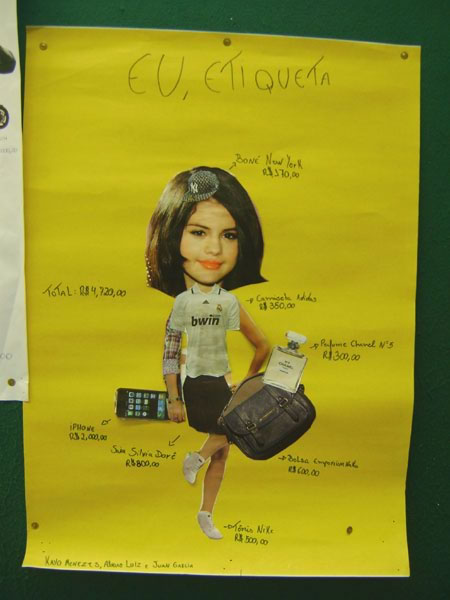 EU, ETIQUETA
BONÉ NEW YORK
R$370,00
TOTAL: R$4,720,00
Camiseta Adidas
R$350,00
bwin
Perfume Chanel Nº5
R$300,00
CHANEL
iPHONE
R$2,000,00
Saia Silvia Doré
R$800,00
Bolsa
R$600,00
Tênis Nike
R$300,00
KAYO MENEZES, LUIZ e JUAN GARCIA